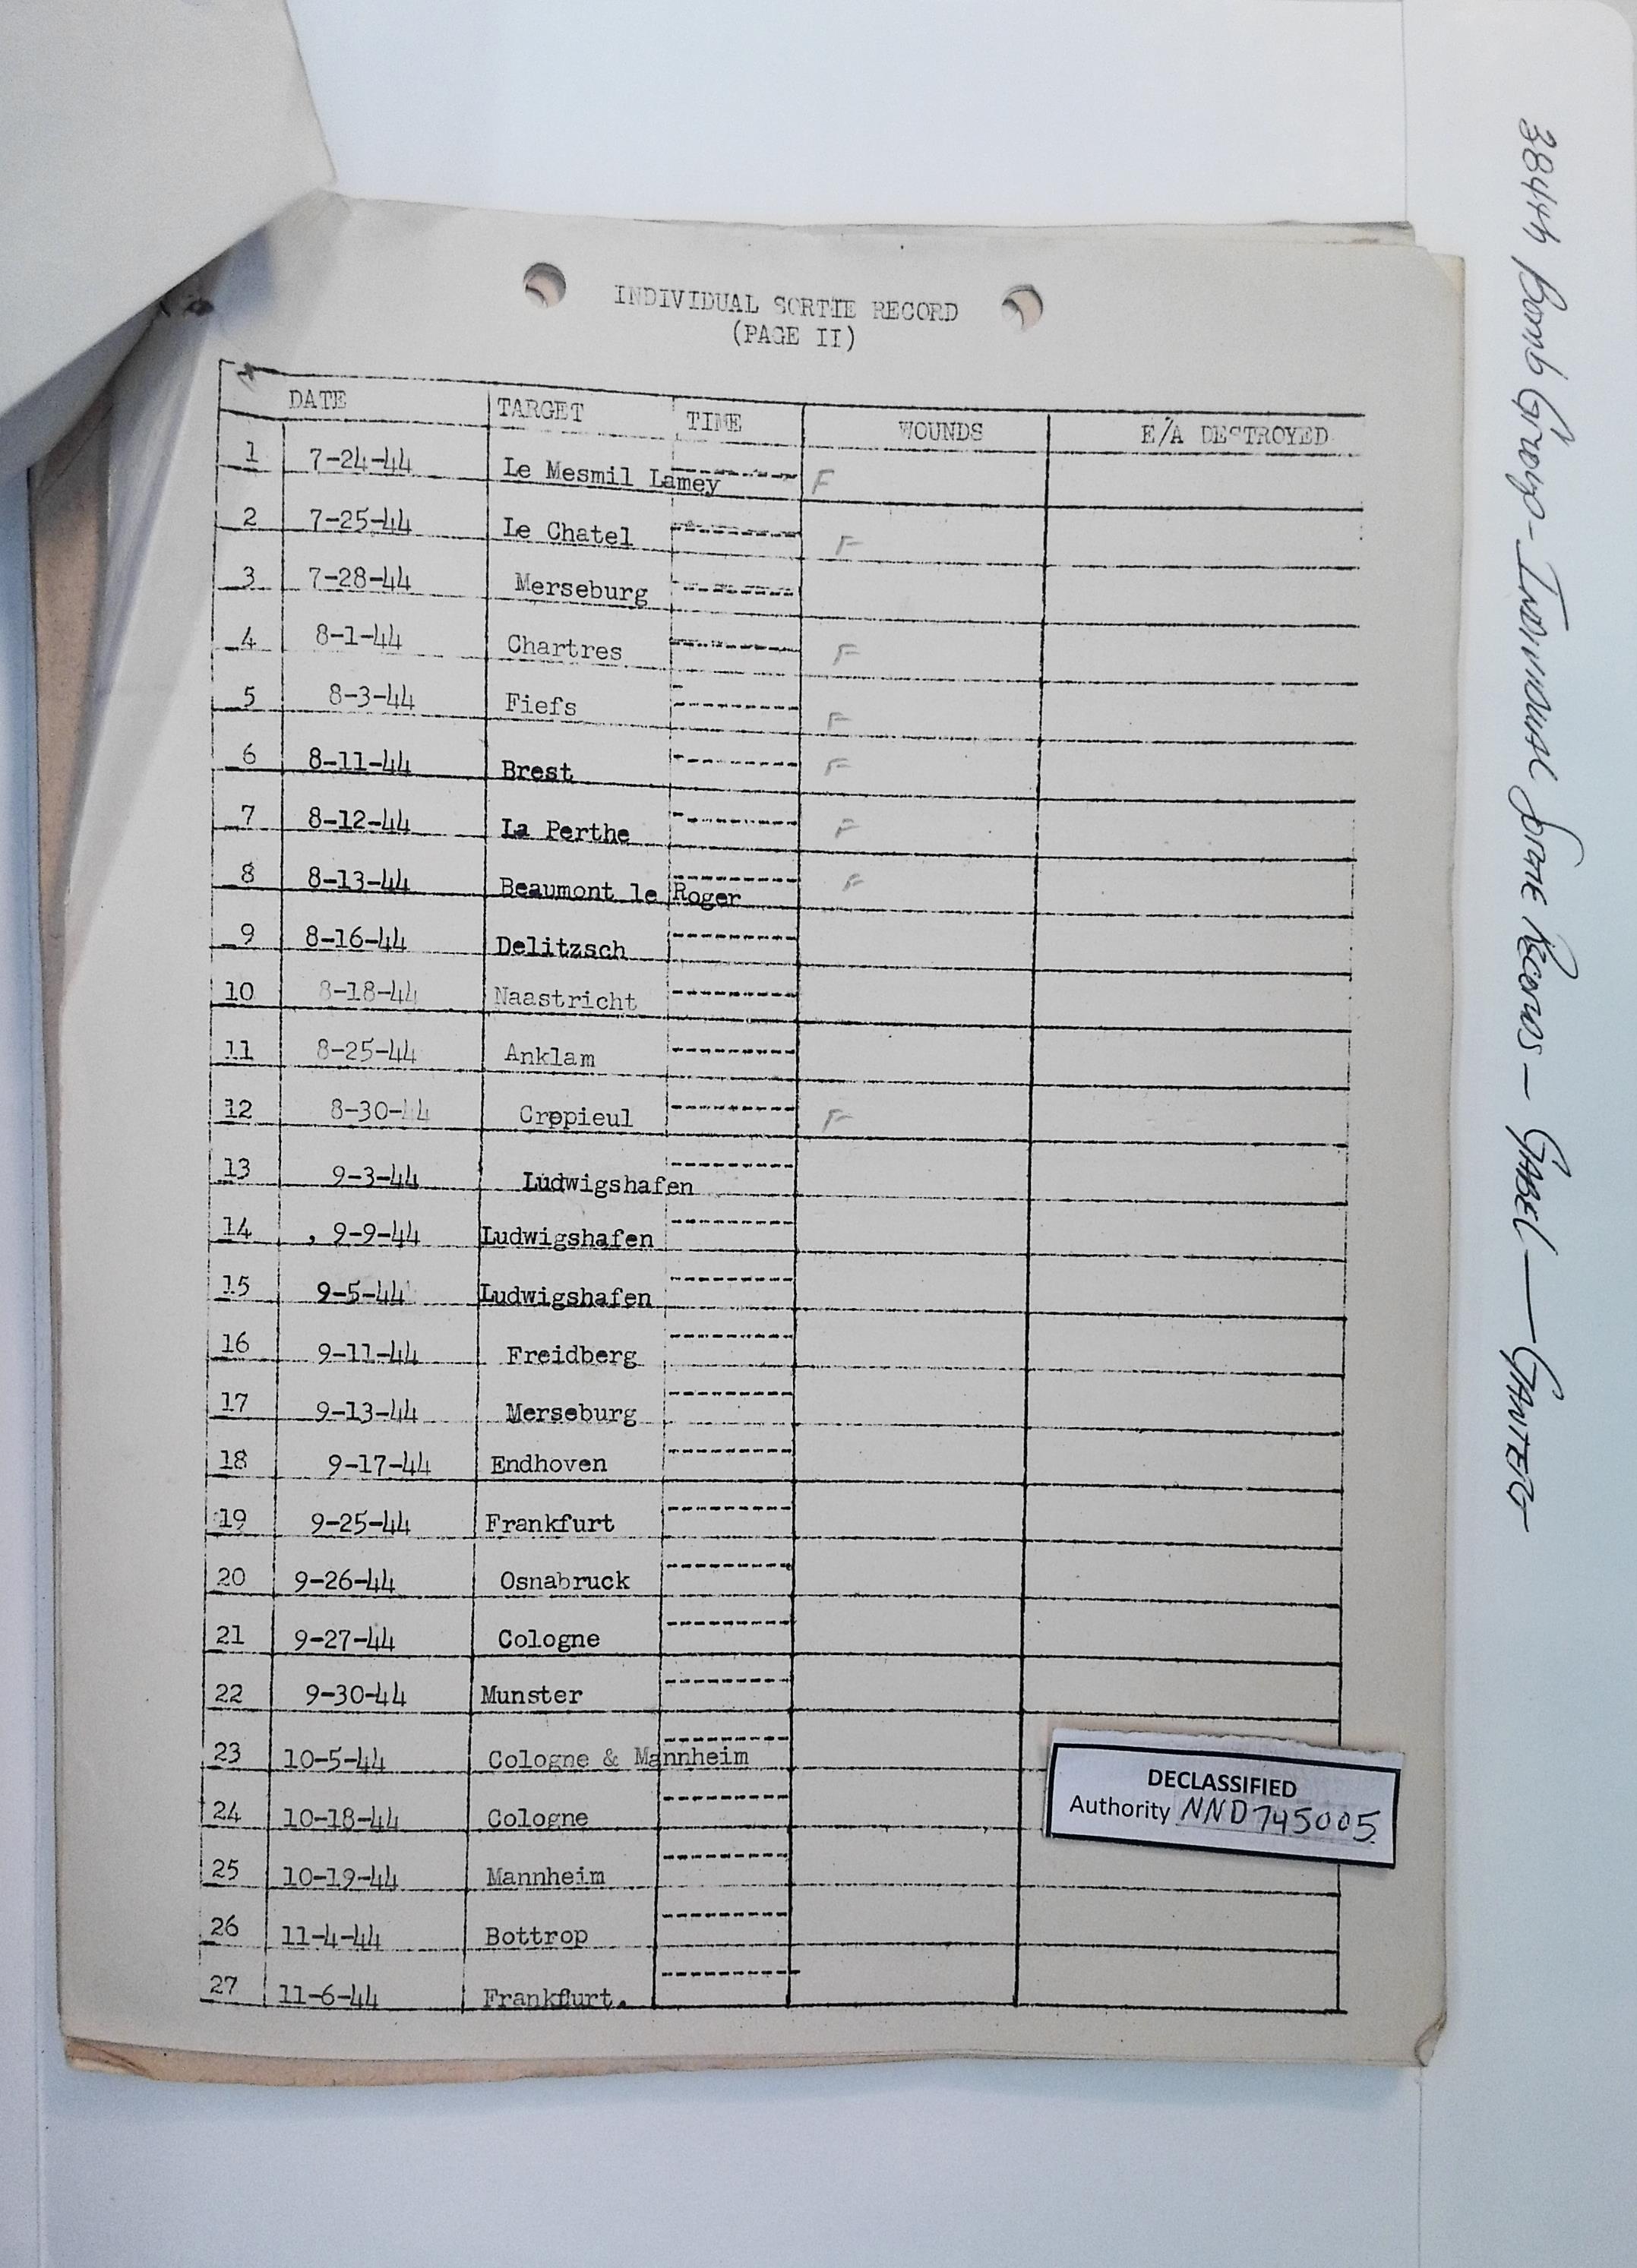 INDIVIDUAL SORTIE RECORD
(PAGE II)
DATE TARGET TIME WOUNDS E/A DESTROYED
1 7-24-44 Le Mesmil Lamey -------- F
2 7-25-44 Le Chatel -------- F
3 7-28-44 Merseburg --------
4 8-1-44 Chartres -------- F
5 8-3-44 Fiefs -------- F
6 8-11-44 Brest -------- F
7 8-12-44 La Perthe -------- F
8 8-13-44 Beaumont le Roger -------- F
9 8-16-44 Delitzsch --------
10 8-18-44 Naastricht --------
11 8-25-44 Anklam --------
12 8-30-44 Crepieul -------- F
13 9-3-44 Ludwigshafen --------
14 , 9-9-44 Ludwigshafen --------
15 9-5-44 Ludwigshafen --------
16 9-11-44 Freidberg --------
17 9-13-44 Merseburg --------
18 9-17-44 Endhoven --------
19 9-25-44 Frankfurt --------
20 9-26-44 Osnabruck --------
21 9-27-44 Cologne --------
22 9-30-44 Munster --------
23 10-5-44 Cologne & Mannheim --------
24 10-18-44 Cologne --------
25 10-19-44 Mannheim --------
26 11-4-44 Bottrop --------
27 11-6-44 Frankfurt. --------
DECLASSIFIED
Authority NND745005
384th Bomb Group - Individual Sortie Records - GABEL — GANTER